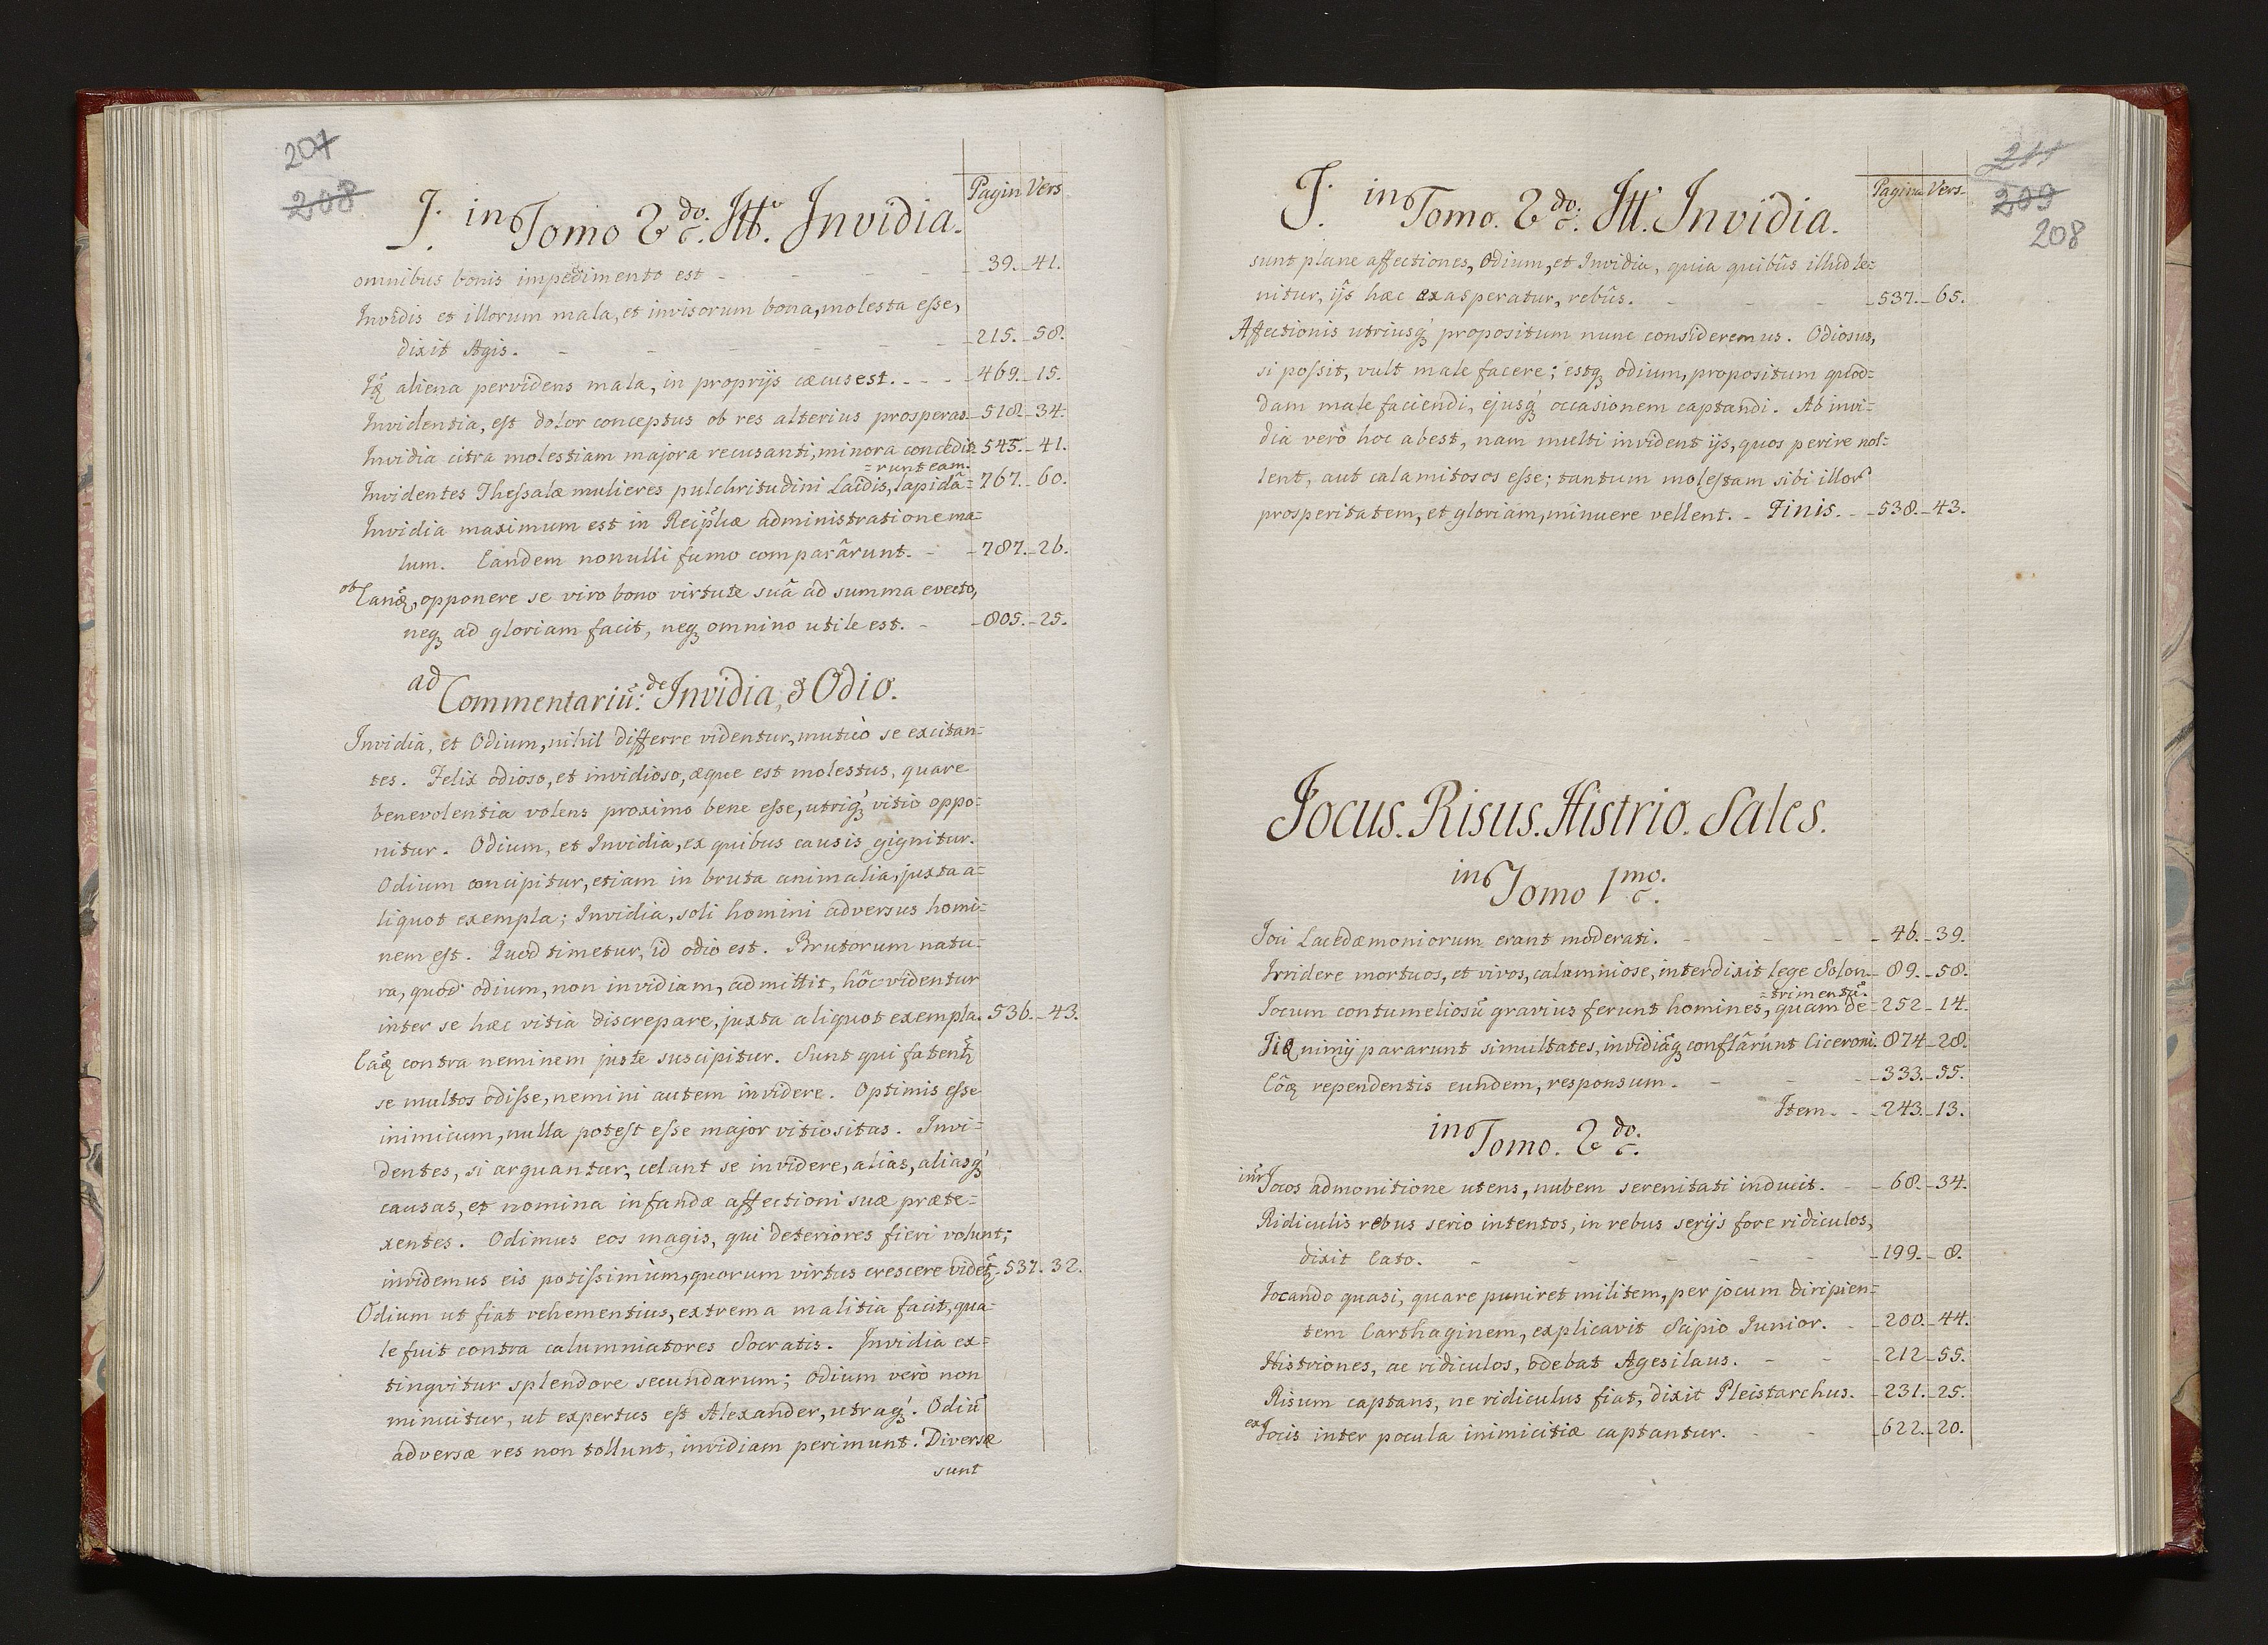 207
208
Pagin Vers
I. in Tomo 2do. Itt. Invidia.
omnibus bonis impedimento est - 39. 41.
Invidis et illorum mala, et invisorum bona, molesta esse,
dixit Agis. - 215. 58.
aliena pervidens mala, in proprijs cæcus est. - 469. 15.
Invidentia, est dolor conceptus ob res alterius prosperas. 518. 34.
Invidia citra molestiam majora recusanti, minora concedit. 545. 41.
=runt eam.
Invidentes Thessalæ mulieres pulchritudini Laidis, lapidâ= 767. 60.
Invidia maximum est in Reipblicæ administratione ma=
lum. Eandem nonulli fumo comparârunt. - 787. 26.
ob Eanq, opponere se viro bono virtute suâ ad summa evecto,
neq ad gloriam facit, neq omnino utile est. - 805. 25.
ad Commentariũ: de Invidia, & Odio.
Invidia, et Odium, nihil differre videntur, mutuò se excitan=
tes. Felix odioso, et invidioso, æque est molestus, quare
benevolentia volens proximo bene esse, utriq vitio oppo=
nitur. Odium, et Invidia, ex quibus causis gignitur.
Odium concipitur, etiam in bruta animalia, juxta a=
liquot exempla; Invidia, soli homini adversus homi=
nem est. Quod timetur, id odio est. Brutorum natu=
ra, quod odium, non invidiam, admittit, hôc videntur
inter se hæc vitia discrepare, juxta aliquot exempla. 536. 43.
Eaq contra neminem juste suscipitur. Sunt qui fatent
se multos odisse, nemini autem invidere. Optimis esse
inimicum, nulla potest esse major vitiositas. Invi=
dentes, si arguantur, celant se invidere, alias, aliasq
causas, et nomina infandæ affectioni suæ præte=
xentes. Odimus eos magis, qui deteriores fieri volunt;
invidemus eis potissimùm, quorum virtus crescere videt 537. 32.
Odium ut fiat vehementius, extrema malitia facit, qua=
le fuit contra calumniatores Socratis. Invidia ex=
tingvitur splendore secundarum; odium verò non
minuitur, ut expertus est Alexander, utraq. Odiũ
adversæ res non tollunt, invidiam perimunt. Diversæ
sunt
211
209
208
Pagina Vers
I. in Tomo. 2do. Itt. Invidia.
sunt plane affectiones, Odium, et Invidia, quia quibus illud le=
nitur, ijs hæc exasperatur, rebûs. - 537. 65.
Affectionis utriusq propositum nunc consideremus. Odiosus,
si possit, vult male facere; estq odium, propositum quod=
dam male faciendi, ejusq occasionem captandi. Ab invi=
dia verò hoc abest, nam multi invident ijs, quos perire nol=
lent, aut calamitosos esse; tantum molestam sibi illor
prosperitatem, et gloriam, minuere vellent. - Finis. - 538. 43.
Jocus. Risus. Histrio. Sales.
in Tomo 1mo.
Joci Lacedæmoniorum erant moderati. - 46. 39.
Irridere mortuos, et vivos, calumniose, interdixit lege Solon 89. 58.
=trimentũ.
Jocum contumeliosũ gravius ferunt homines, quam de= 252. 14.
nimij pararunt simultates, invidiãq conflârunt Ciceroni. 874. 28.
Eôq rependentis eundem, responsum. - 333. 55.
Item. - 243. 13.
in Tomo. 2do.
intr Jocos admonitione utens, nubem serenitati inducit. - 68. 34.
Ridiculis rebus serio intentos, in rebus serijs fore ridiculos,
dixit Cato. - 199. 8.
Jocando quasi, quare puniret militem, per jocum diripien=
tem Carthaginem, explicavit Scipio Junior. - 200. 44.
Histriones, ac ridiculos, odebat Agesilaus. - 212. 55.
Risum captans, ne ridiculus fiat, dixit Pleistarchus. 231. 25.
ex Jocis inter pocula inimicitiæ captantur. - 622. 20.